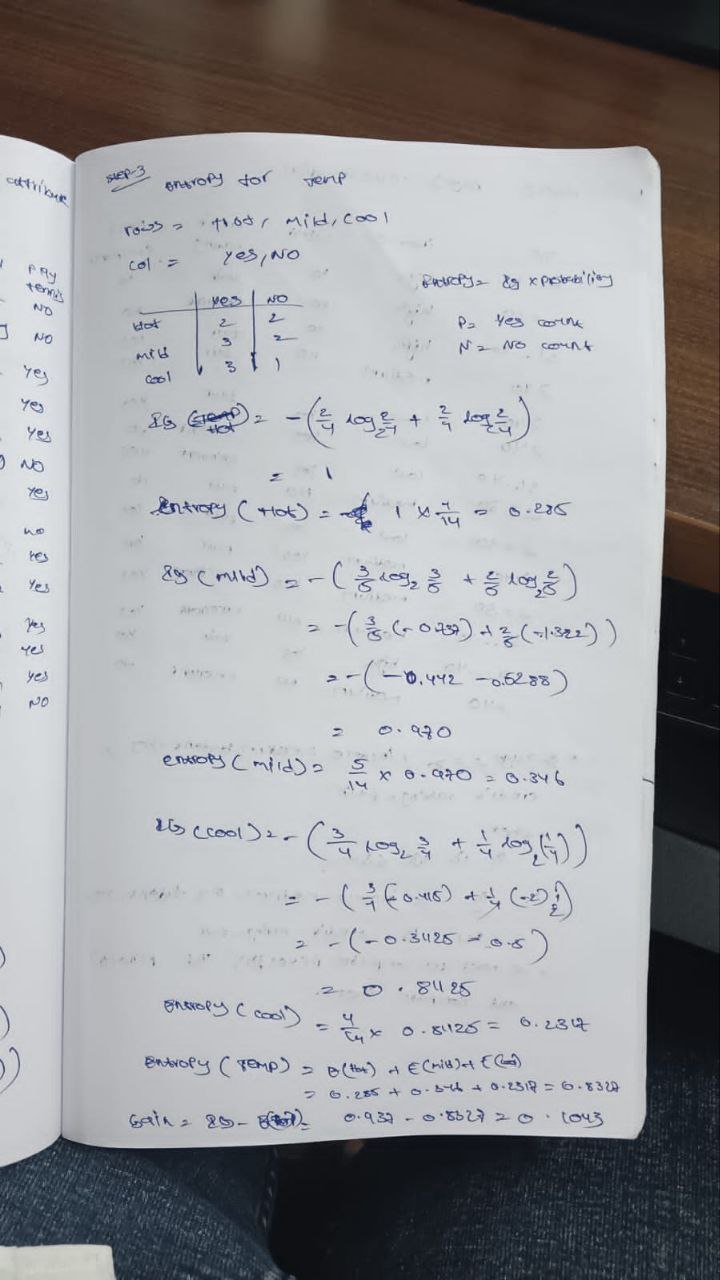 attribute
Play
tennis
NO
NO
Yes
Yes
Yes
NO
Yes
no
Yes
Yes
Yes
Yes
Yes
NO
Step-3 Entropy for Temp
rows = Hot, Mild, Cool
Col = Yes, NO
Entropy = Ig x probability
P = Yes count
N = No count
Yes NO
Hot 2 2
Mild 3 2
Cool 3 1
IG (Hot) = -(2/4 log₂ 2/4 + 2/4 log₂ 2/4)
= 1
Entropy (Hot) = 1 x 4/14 = 0.285
Ig (Mild) = -(3/5 log₂ 3/5 + 2/5 log₂ 2/5)
= -(3/5 (-0.737) + 2/5 (-1.322))
= -(-0.442 -0.5288)
= 0.970
entropy (Mild) = 5/14 x 0.970 = 0.346
IG (Cool) = -(3/4 log₂ 3/4 + 1/4 log₂(1/4))
= -(3/4 (-0.415) + 1/4 (-2))
= -(-0.3125 - 0.5)
= 0.8125
Entropy (Cool) = 4/14 x 0.8125 = 0.2317
Entropy (Temp) = E(Hot) + E(Mild) + E(Cool)
= 0.285 + 0.346 + 0.2317 = 0.8327
Gain = IG - = 0.937 - 0.8327 = 0.1043